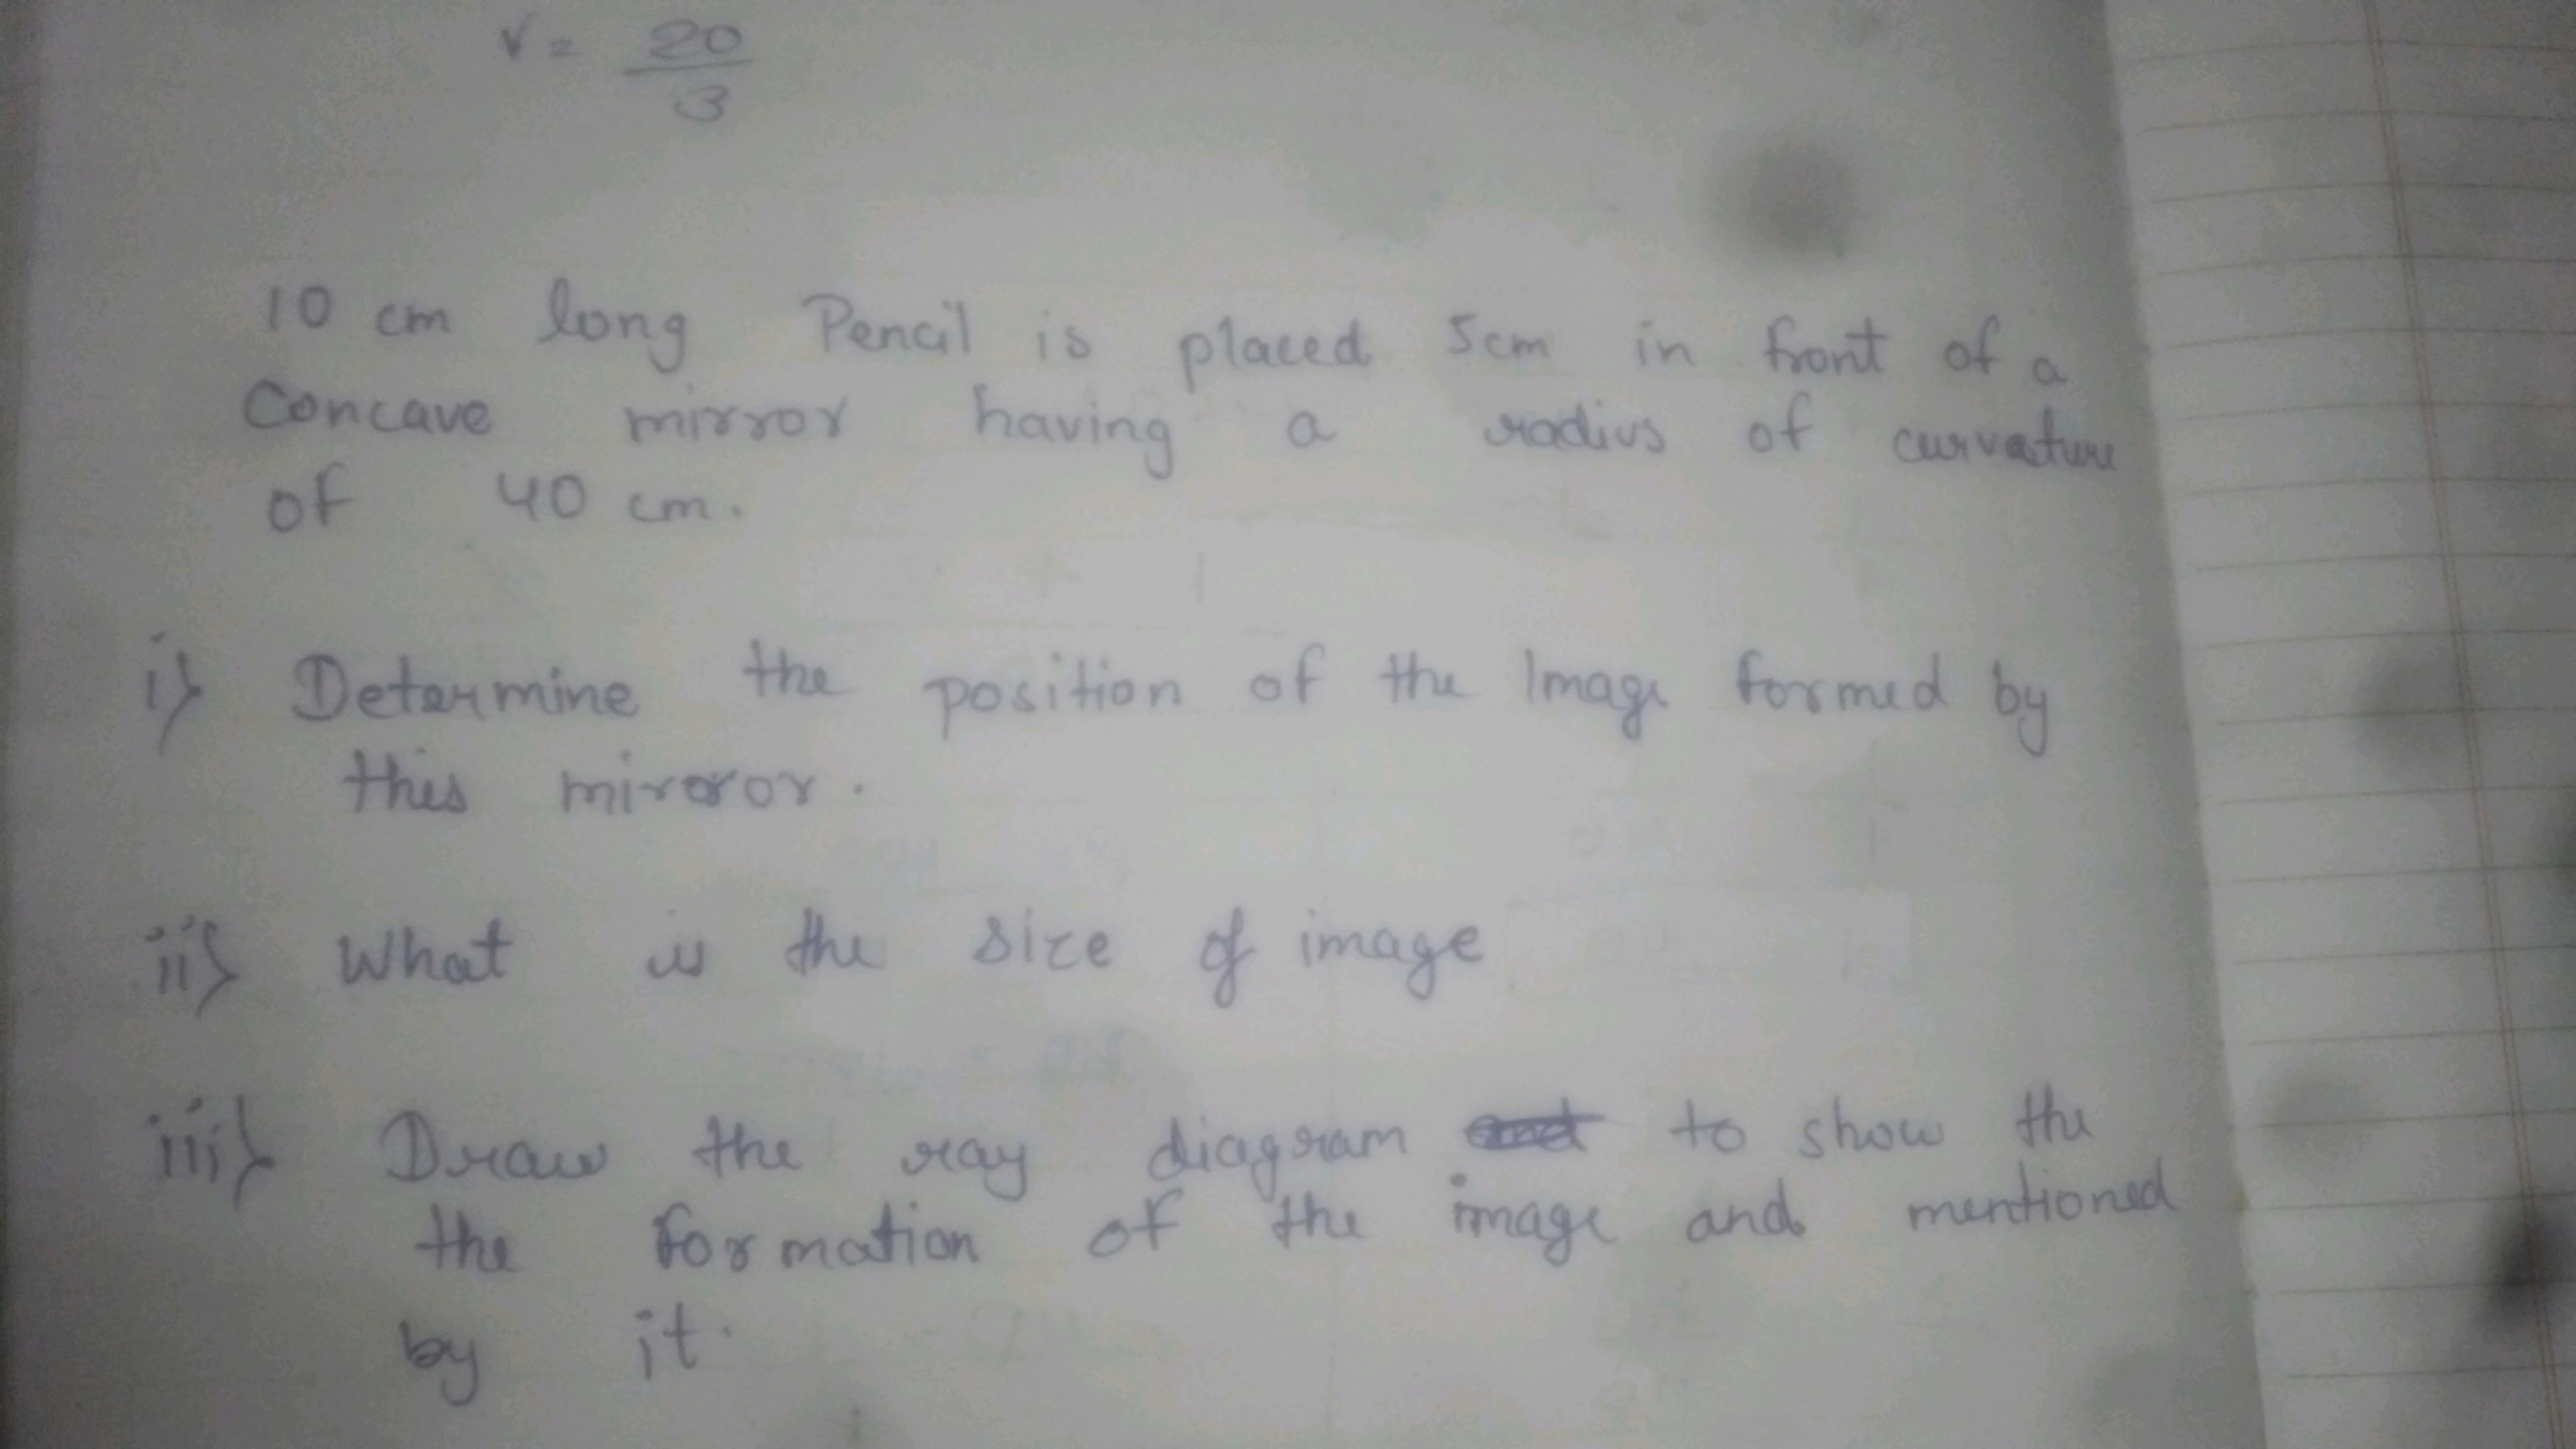 v = 20
3
10 cm long Pencil is placed 5cm in front of a
Concave mirror having a radius of curvature
of 40 cm.
i} Determine the position of the Image formed by
this mirror.
ii} What is the size of image
iii} Draw the ray diagram to show the
the formation of the image and mentioned
by it.